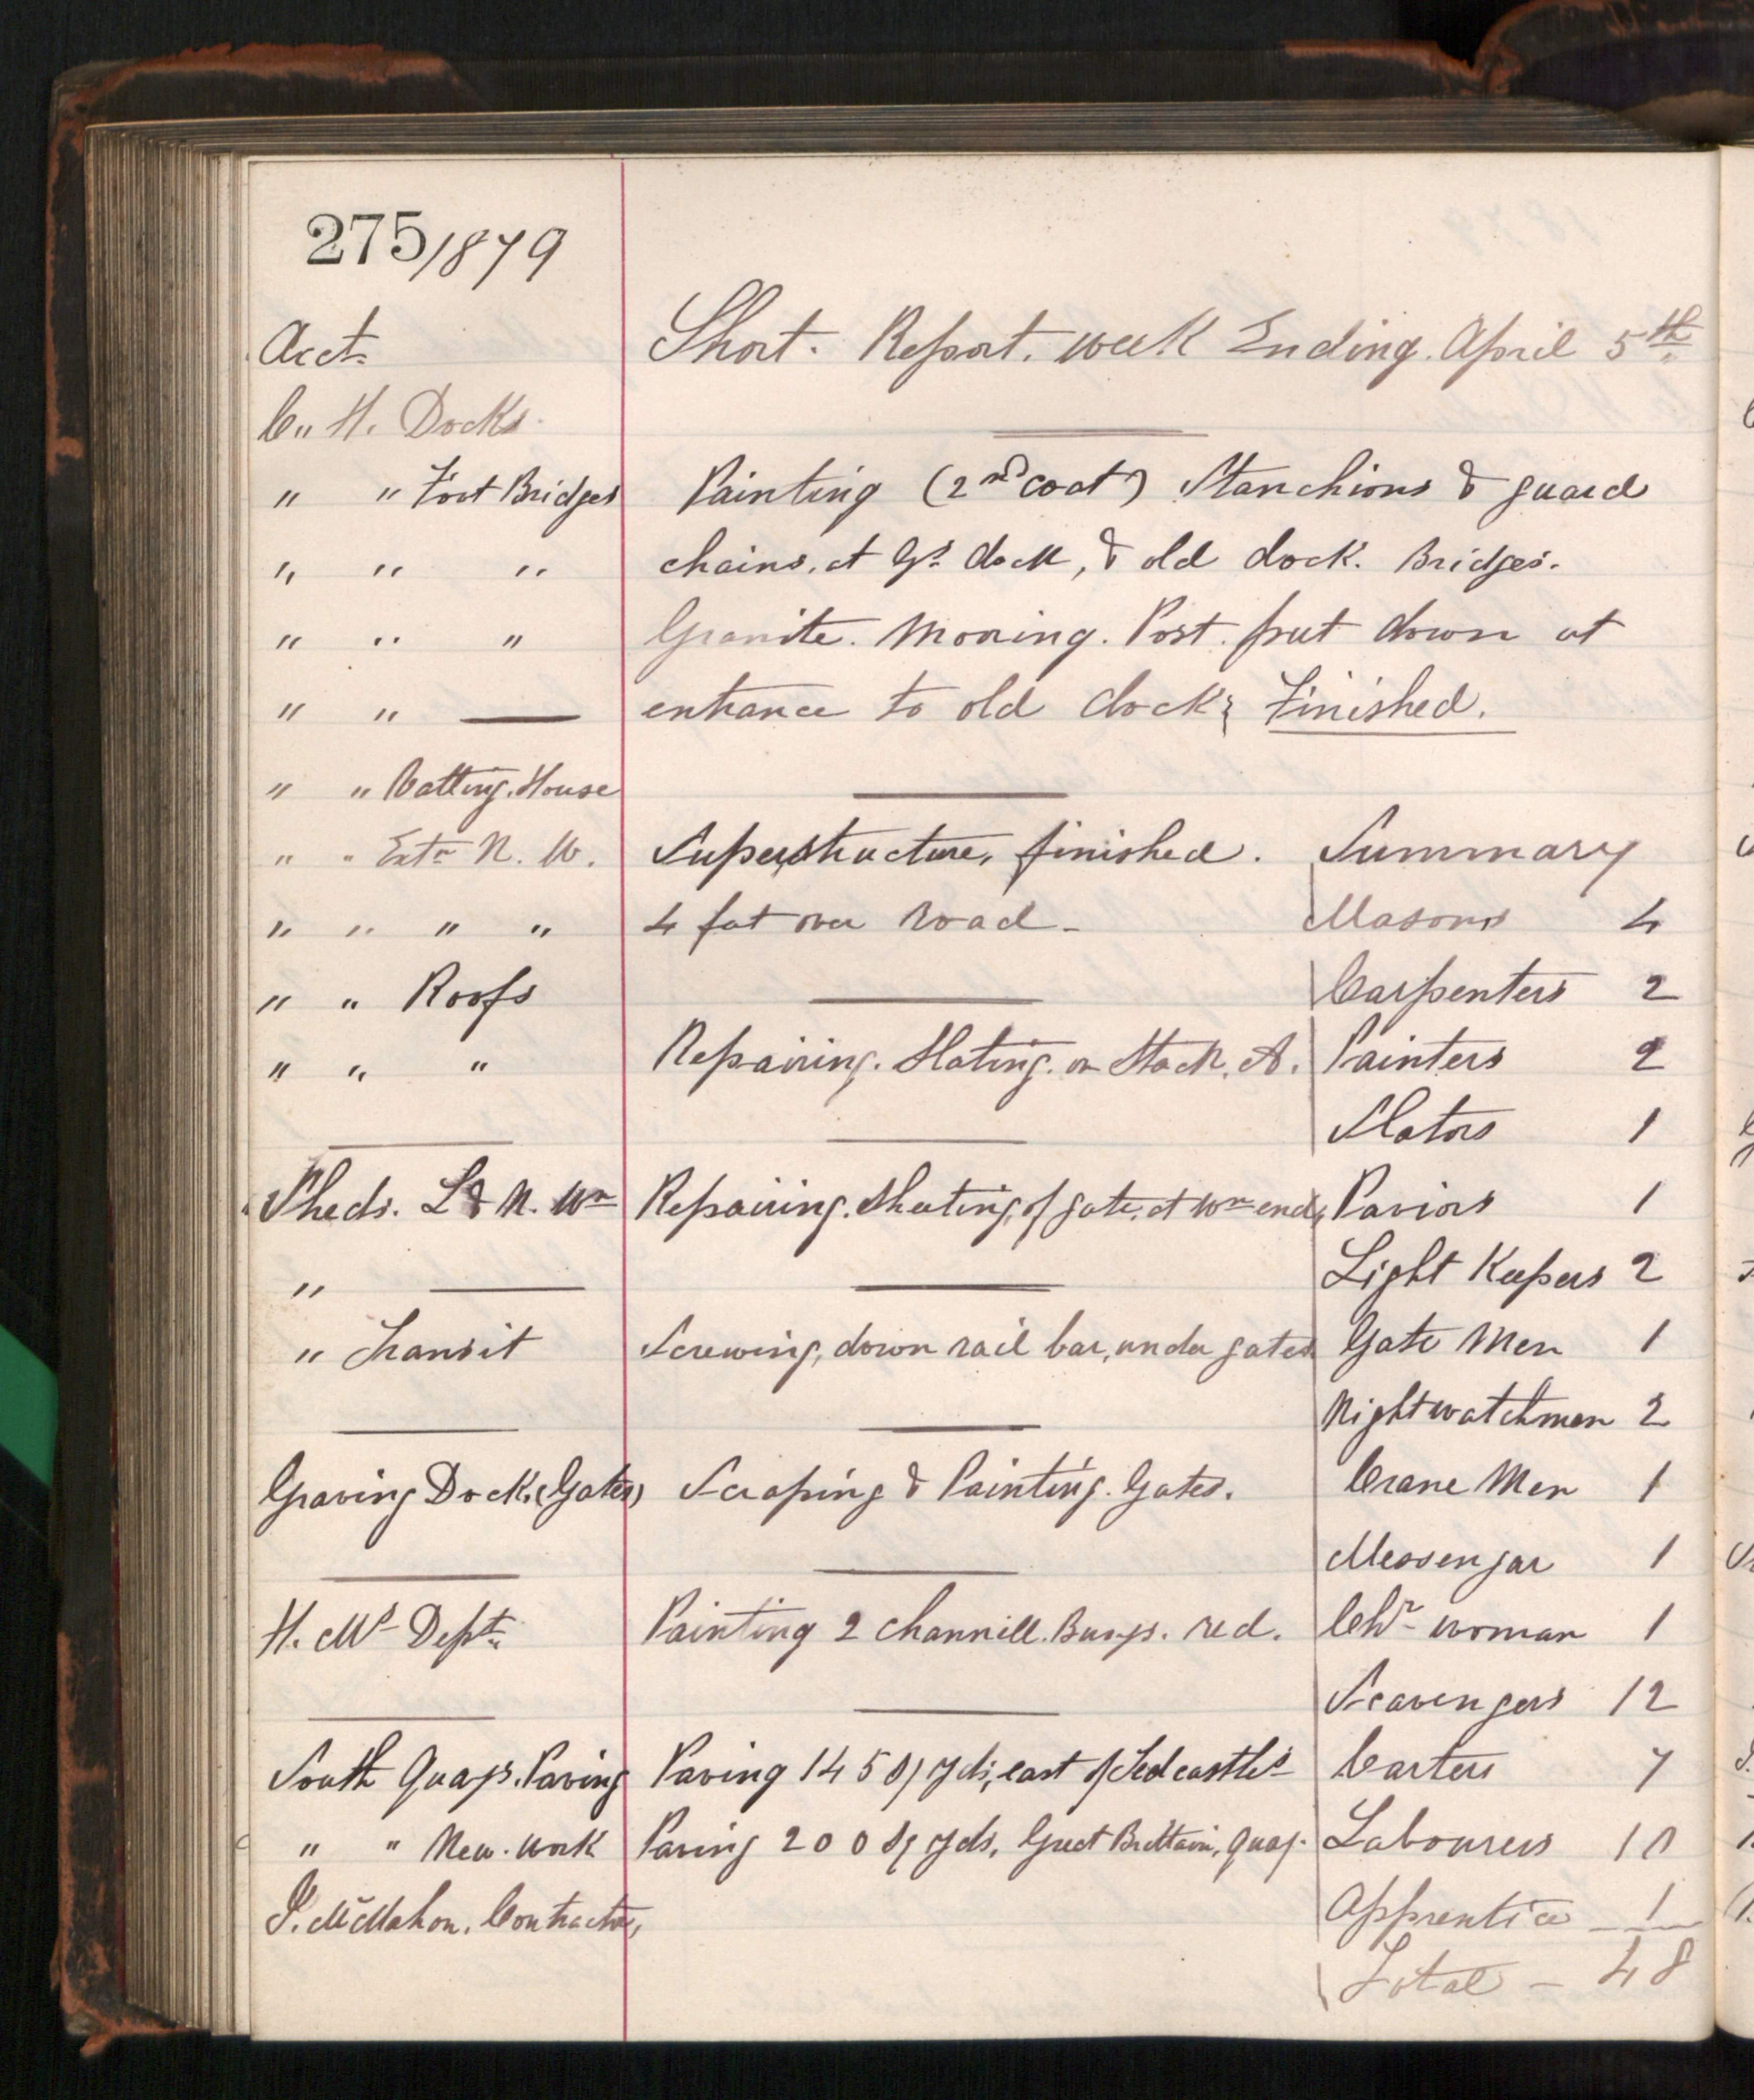 275/1879
Acct. Short. Report. week Ending. April 5th
C. H. Docks.
" " Foot Bridges Painting (2nd coat) Stanchions & guard
" " " chains, at Gg dock, & old dock. Bridges.
" " " Granite. Mooring. Post. put down at
" " — entrance to old dock, Finished.
" " Vatting. House
" " Extn N. W. Superstructure, finished. Summary
" " " " 4 feet over Road - Masons 4
" " Roofs Carpenters 2
" " " Repairing. Slating. on Stack. A. Painters 2
Slators 1
Sheds. L & N. Wn Repairing. Sheeting, of gate, at Wn end, Paviors 1
" — Light Keepers 2
" Transit Screwing, down rail bar, under gates Gate Men 1
Nightwatchmen 2
Graving Dock. (Gates) Scraping & Painting. Gates. Crane Men 1
Messengar 1
H. Mrs Dept. Painting 2 channill. Buoys. red. Chr woman 1
Scavengers 12
South Quays. Paving Paving 145 Sq yds, east of Tedcastles Carters 7
" " New. work Paving 200 Sq yds, Great Brittain, Quay. Labourers 10
P. McMahon. Contractor, Apprentice - 1
Total - 48